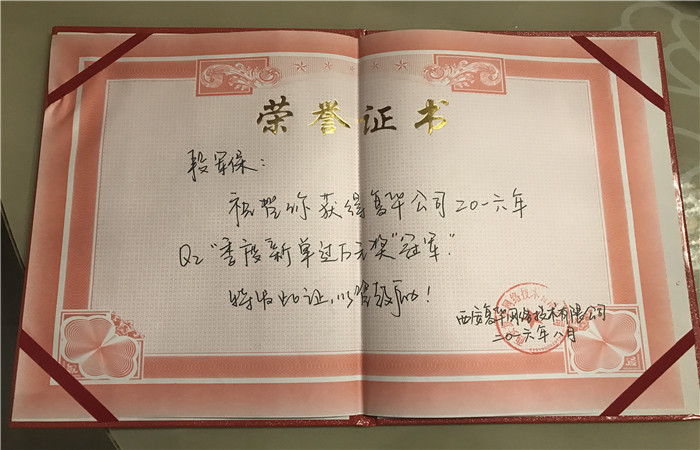 荣誉证书
段军保：
祝贺你获得复华公司二〇一六年
Q2“季度新单过万元奖”冠军“
特发此证，以资鼓励！
西安复华网络技术有限公司
二〇一六年八月
网络技术